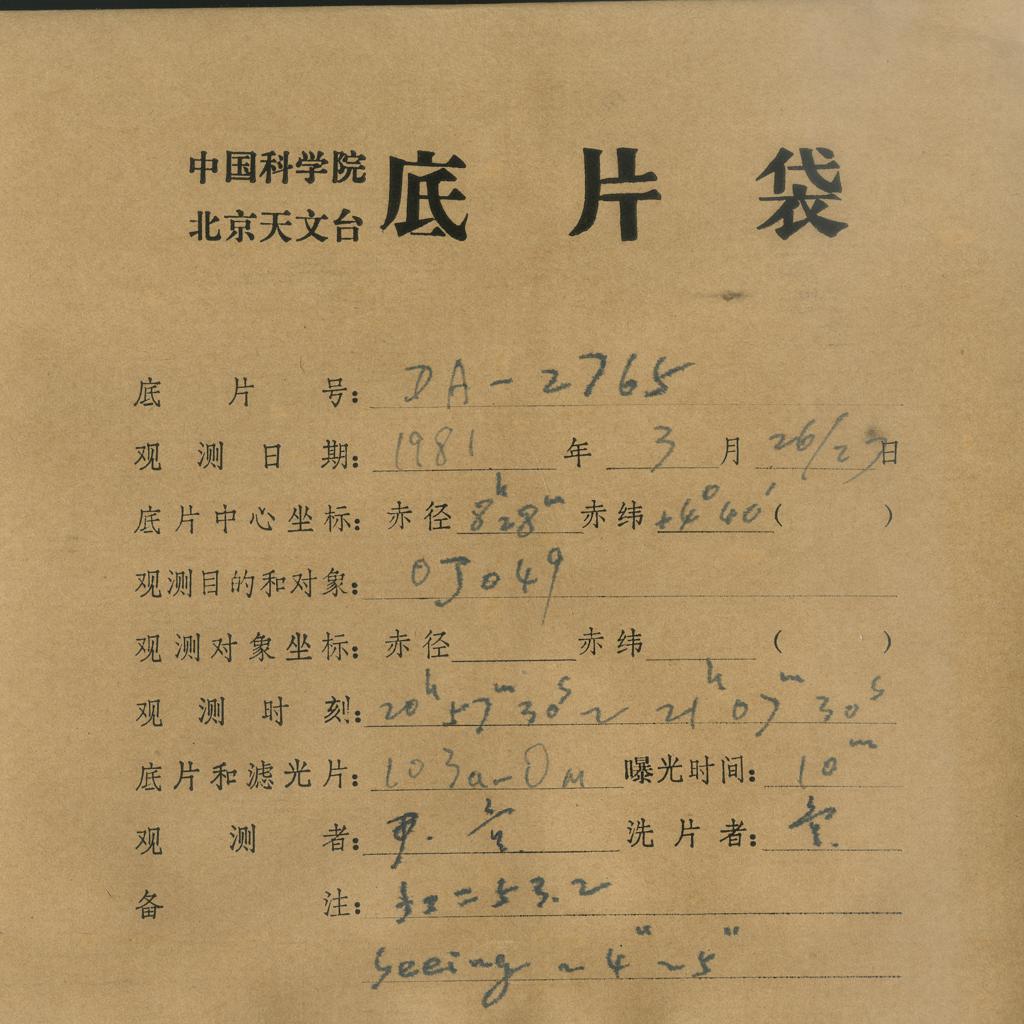 中国科学院
北京天文台
底片袋
底片号: DA-2765
观测日期: 1981年 3月 26/27日
底片中心坐标: 赤径 8h28m 赤纬 +4°40′( )
观测目的和对象: OJ049
观测对象坐标: 赤径 赤纬 ( )
观测时刻: 20h57m30s ~ 21h07m30s
底片和滤光片: 103a-O 曝光时间: 10m
观测者: 洗片者:
备注: =53.2
seeing ~4″~5″